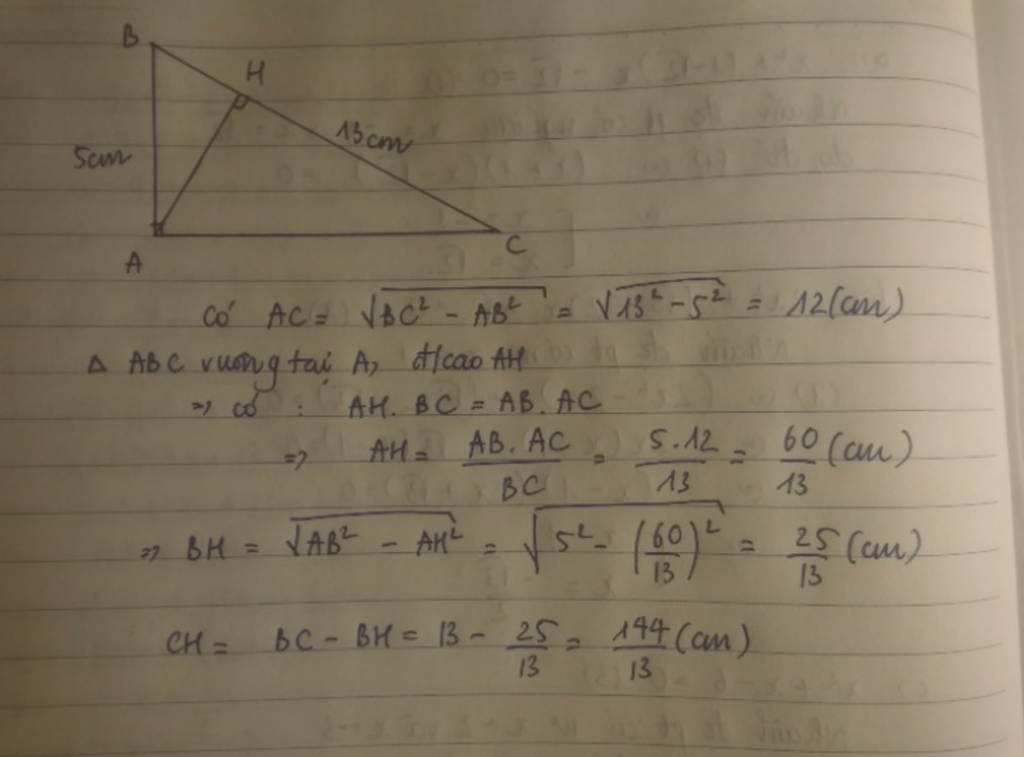 B
H
13cm
5cm
A
C
Có AC = √(BC² - AB²) = √(13² - 5²) = 12 (cm)
Δ ABC vuông tại A, đ/cao AH
=> có : AH. BC = AB. AC
=> AH = AB. AC / BC = 5.12 / 13 = 60/13 (cm)
=> BH = √(AB² - AH²) = √(5² - (60/13)²) = 25/13 (cm)
CH = BC - BH = 13 - 25/13 = 144/13 (cm)